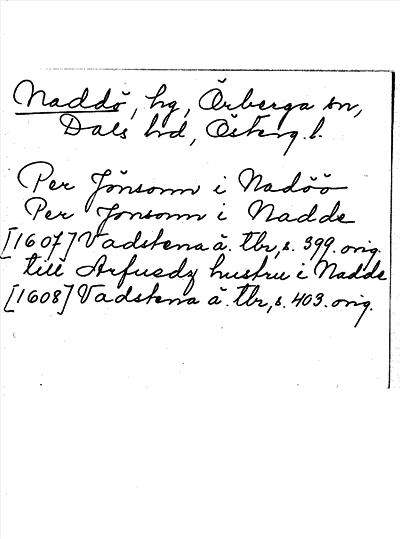 Naddö, hg, Örberga sn,
Dals hd, Österg. l.
Per Jönsonn i Nadöö
Per Jonsonn i Nadde
[1607] Vadstena ä. tbr, s. 399. orig.
till Arfuedz hustru i Nadde
[1608] Vadstena ä. tbr, s. 403. orig.